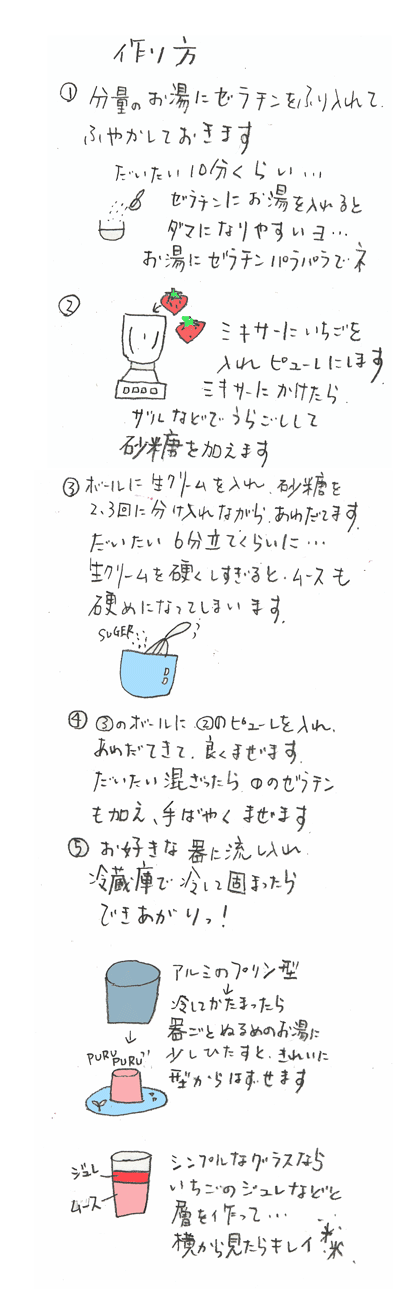 作り方
① 分量のお湯にゼラチンをふり入れて
ふやかしておきます
だいたい10分くらい…
ゼラチンにお湯を入れると
ダマになりやすいヨ…
お湯にゼラチンパラパラでネ
②
ミキサーにいちごを
入れピューレにします
ミキサーにかけたら
ザルなどでうらごしして
砂糖を加えます
③ ボールに生クリームを入れ、砂糖を
2、3回に分け入れながら、あわだてます。
だいたい6分立てくらいに…
生クリームを硬くしすぎると、ムースも
硬めになってしまいます。
SUGER
④ ③のボールに②のピューレを入れ、
あわだてきで、良くまぜます。
だいたい混ざったら①のゼラチン
も加え、手ばやくまぜます
⑤ お好きな器に流し入れ
冷蔵庫で冷して固まったら
できあがりっ!
アルミのプリン型
↓
冷してかたまったら
器ごとぬるめのお湯に
少しひたすと、きれいに
型からはずせます
↓
PURU PURU
シンプルなグラスなら
いちごのジュレなどと
層を作って…
横から見たらキレイ
ジュレ
ムース